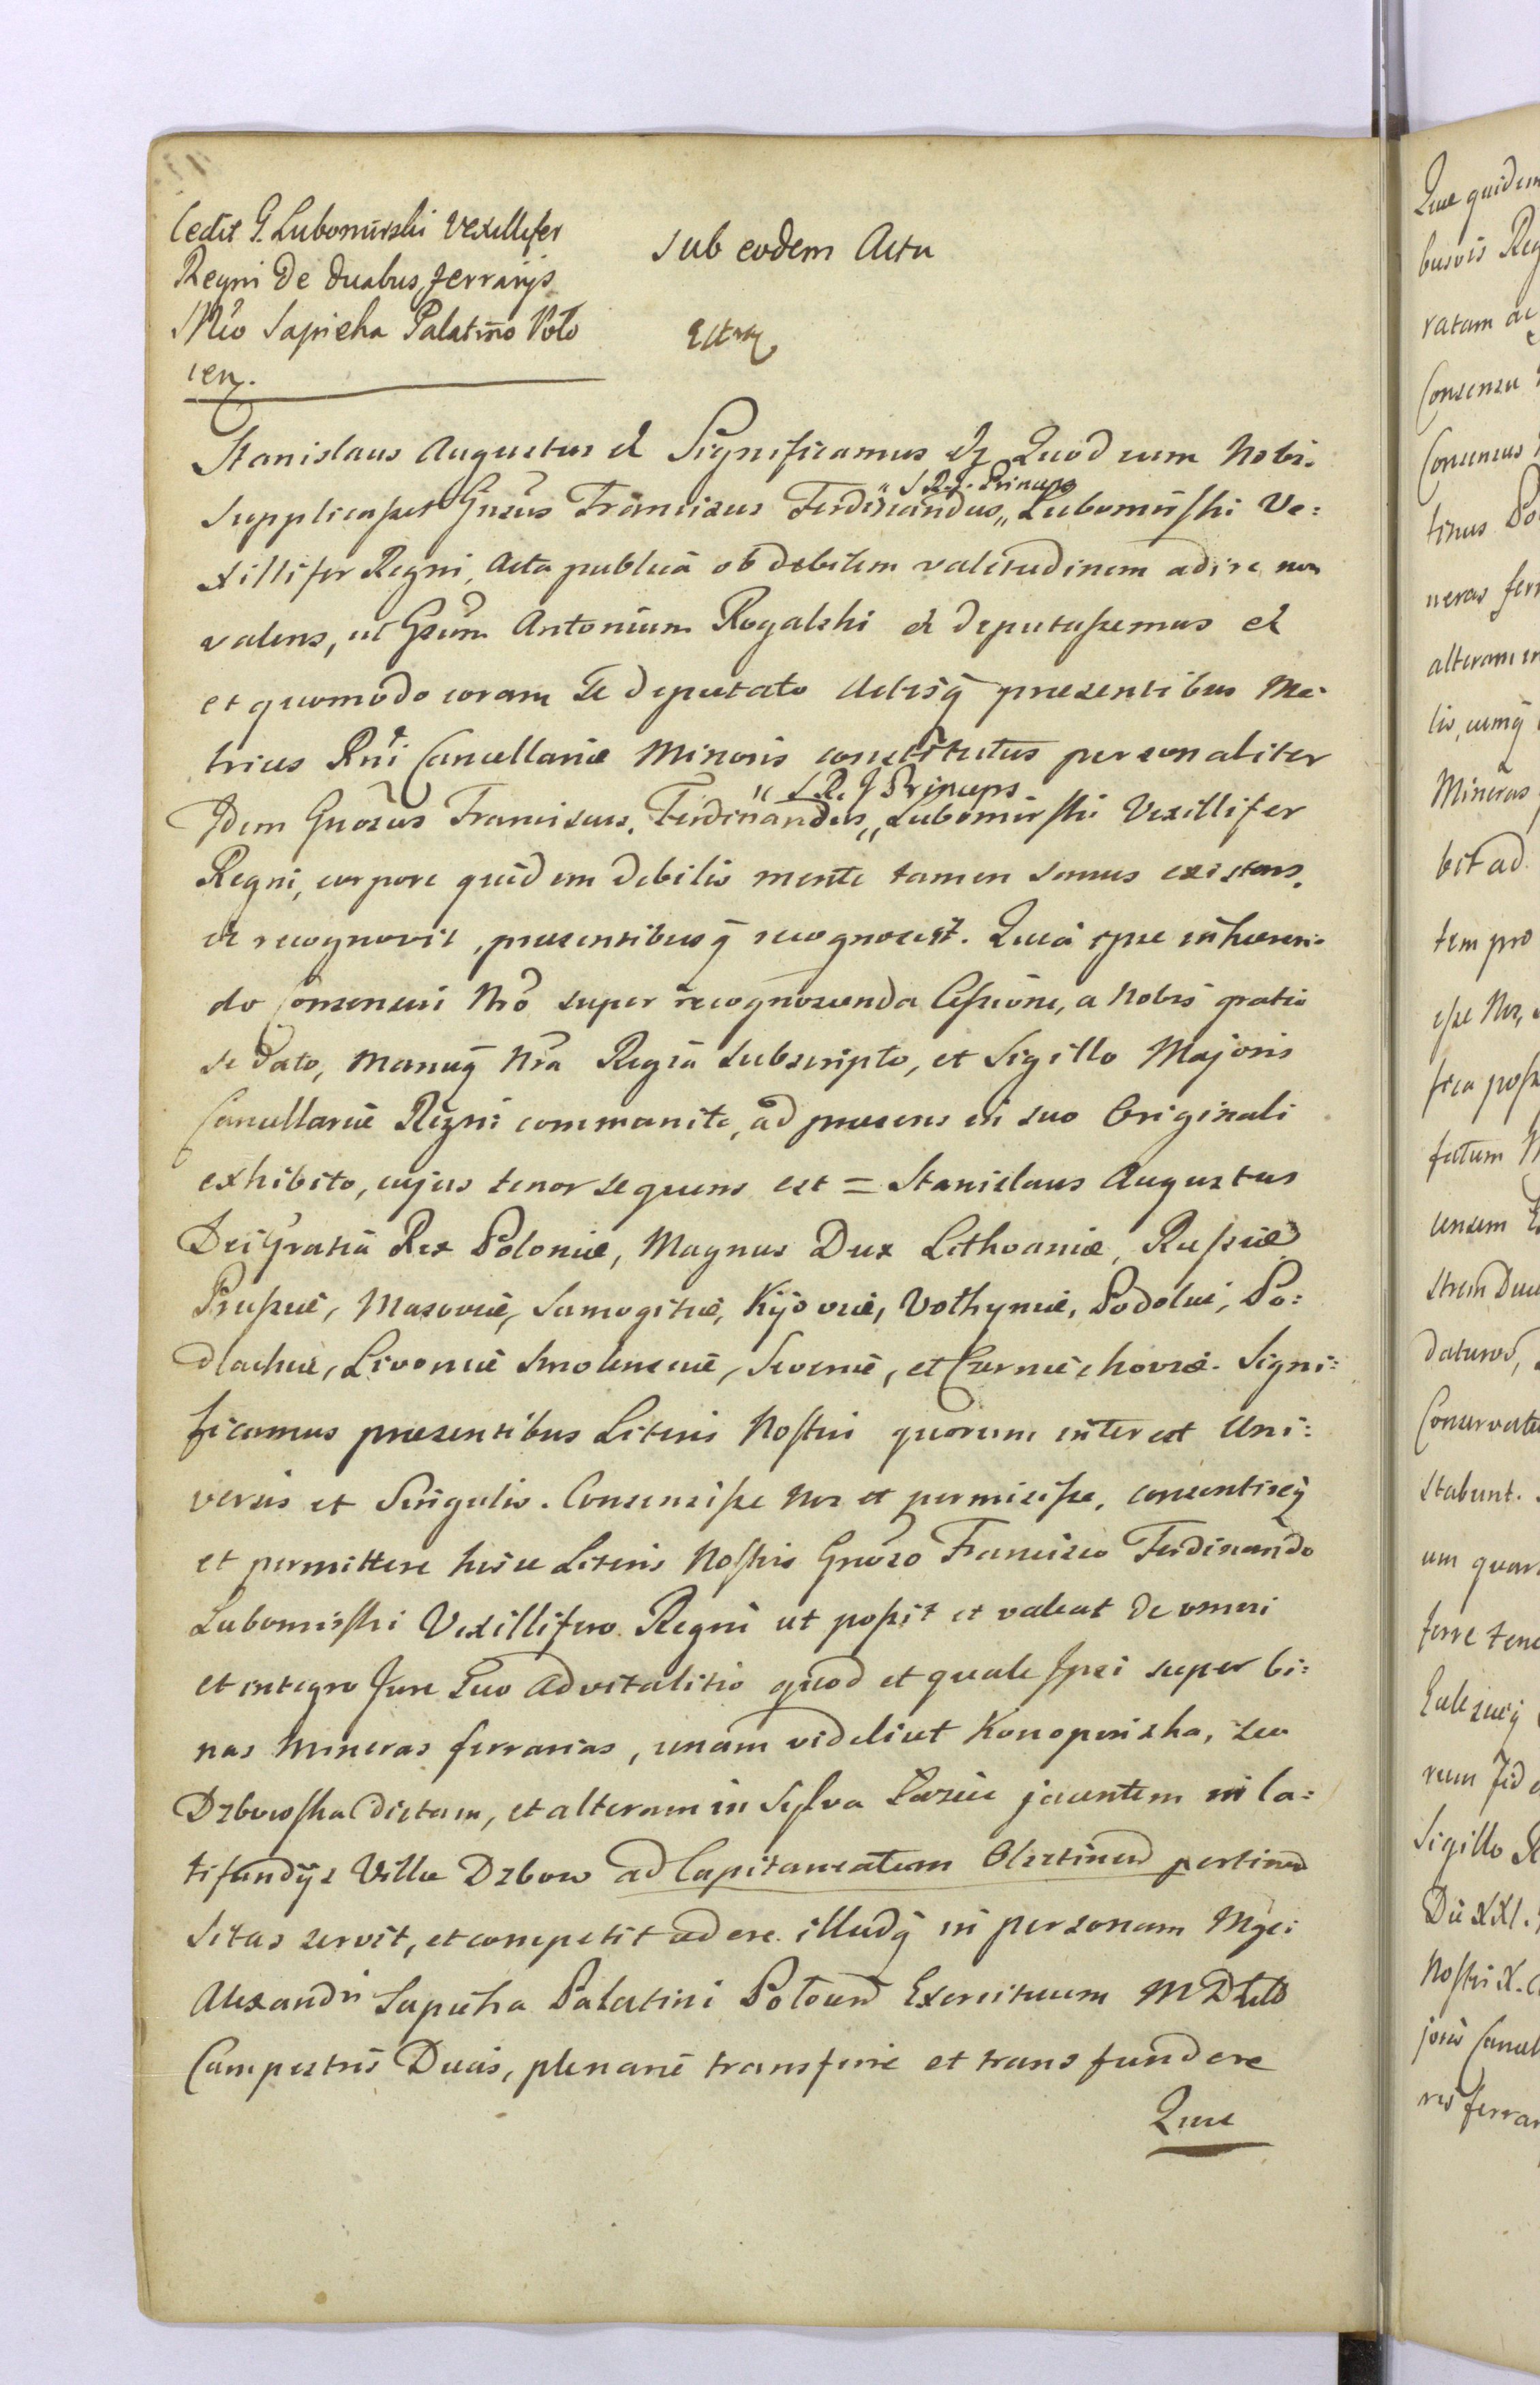 Cedit G. Lubomirski Vexillifer
Regni de duabus ferrarijs
Mco Sapieha Palatino Poło
cen.
Sub eodem Actu
Stanislaus Augustus et Significamus etz Quod cum Nobis
supplicasset Gnsus Franciscus Ferdinandus „ Lubomirski Ve:
„ S. R. J. Princeps
xillifer Regni, Acta publica ob debilem valetudinem adire non
valens, ut Gsum Antonium Rogalski et deputassemus et
et quomodo coram Te deputato Actisq̃ praesentibus Me:
trices Rni Cancellariae Minoris constitutus personaliter
„ S. R. J Princeps
Idem Gnosus Franciscus, Ferdinandus „ Lubomirski Vexillifer
Regni, corpore quidem debilis mente tamen sanus existens,
et recognovit, praesentibusq̃ recognoscit. Quia ipse inhaeren:
do Consensui Nro super recognoscenda Cessione, a Nobis gratio
se dato, Manuq̃ Nra Regia subscripto, et Sigillo Majoris
Cancellariae Regni communito, ad praesens in suo Originali
exhibito, cujus tenor sequens est = Stanislaus Augustus
Dei Gratia Rex Poloniae, Magnus Dux Lithvaniae, Russiae
Prussiae, Masoviae, Samogitiae, Kijoviae, Volhyniae, Podoliae, Po:
dlachiae, Livoniae Smolensciae, Severiae, et Czerniechoviae. Signi:
ficamus praesentibus Literis Nostris quorum interest Uni:
versis et Singulis. Consensisse Nos et permisisse, consentireq̃
et permittere hisce Literis Nostris Gnoso Francisco Ferdinando
Lubomirski Vexillifero Regni ut possit et valeat de omni
et integro Jure Suo Advitalitio quod et quale Ipsi super bi:
nas Mineras ferrarias, unam videlicet Konopiszka, seu
Dzbowska dictam, et alteram in Sylva Łaziec jacentem in la:
tifundijs Villae Dzbow ad Capitaneatum Olsztinen pertinen
sitas servit, et competit cedere illudq̃ in personam Mgci
Alexandri Sapieha Palatini Połocen Exercituum M D Litt
Campestris Ducis, plenarie transferre et transfundere
Quae
Quae quidem
busvis Reg
ratam ac
Consensu
Consensus
tinus Po
neras ferr
alteram in
lio, cumq̃
Mineras
bit ad
tem pro
esse Nos,
fica poss
fatum
censem
strem Duc
daturos,
Conservatu
stabunt.
um quar
ferre tene
rum fid
Sigillo
Die XXI.
Nostri X.
joris Cancel
res ferrar